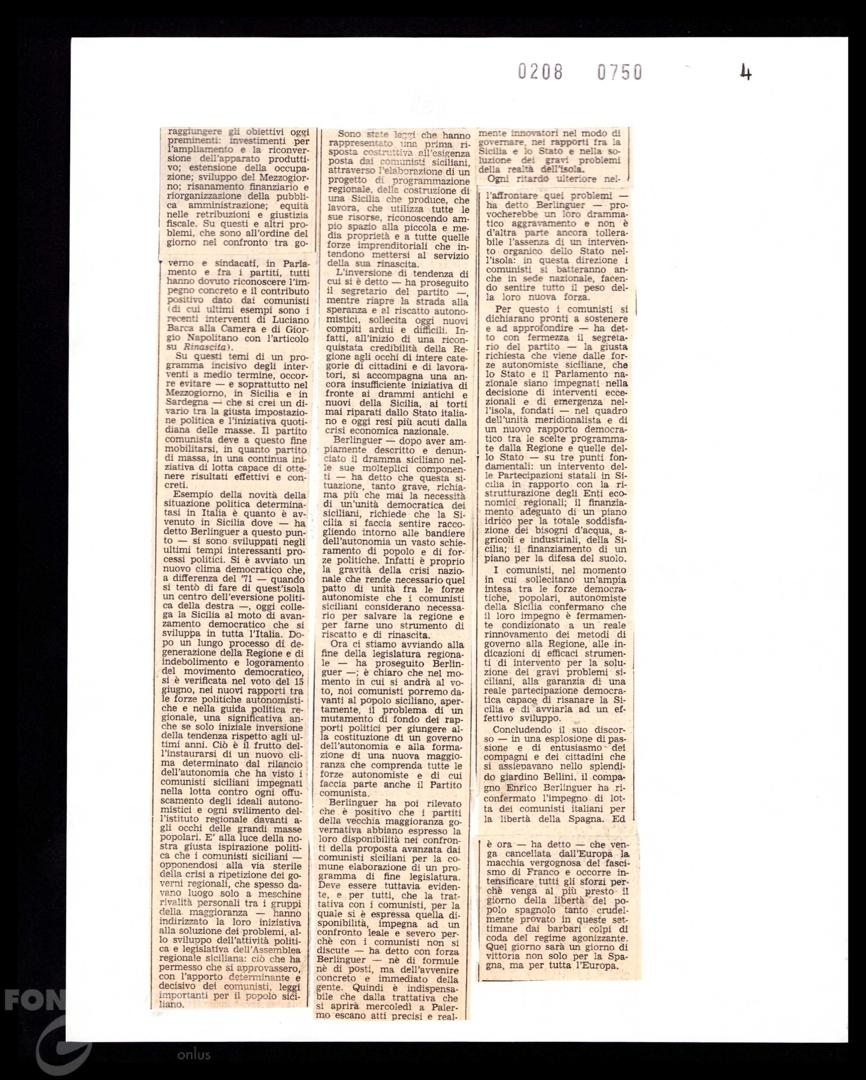 0208 0750 4
raggiungere gli obiettivi oggi
preminenti: investimenti per
l'ampliamento e la riconver-
sione dell'apparato produtti-
vo; estensione della occupa-
zione; sviluppo del Mezzogior-
no; risanamento finanziario e
riorganizzazione della pubbli-
ca amministrazione; equità
nelle retribuzioni e giustizia
fiscale. Su questi e altri pro-
blemi, che sono all'ordine del
giorno nel confronto tra go-
verno e sindacati, in Parla-
mento e fra i partiti, tutti
hanno dovuto riconoscere l'im-
pegno concreto e il contributo
positivo dato dai comunisti
(di cui ultimi esempi sono i
recenti interventi di Luciano
Barca alla Camera e di Gior-
gio Napolitano con l'articolo
su Rinascita).
Su questi temi di un pro-
gramma incisivo degli inter-
venti a medio termine, occor-
re evitare — e soprattutto nel
Mezzogiorno, in Sicilia e in
Sardegna — che si crei un di-
vario tra la giusta impostazio-
ne politica e l'iniziativa quoti-
diana delle masse. Il partito
comunista deve a questo fine
mobilitarsi, in quanto partito
di massa, in una continua ini-
ziativa di lotta capace di otte-
nere risultati effettivi e con-
creti.
Esempio della novità della
situazione politica determina-
tasi in Italia è quanto è av-
venuto in Sicilia dove — ha
detto Berlinguer a questo pun-
to — si sono sviluppati negli
ultimi tempi interessanti pro-
cessi politici. Si è avviato un
nuovo clima democratico che,
a differenza del '71 — quando
si tentò di fare di quest'isola
un centro dell'eversione politi-
ca della destra —, oggi colle-
ga la Sicilia al moto di avan-
zamento democratico che si
sviluppa in tutta l'Italia. Do-
po un lungo processo di de-
generazione della Regione e di
indebolimento e logoramento
del movimento democratico,
si è verificata nel voto del 15
giugno, nei nuovi rapporti tra
le forze politiche autonomisti-
che e nella guida politica re-
gionale, una significativa an-
che se solo iniziale inversione
della tendenza rispetto agli ul-
timi anni. Ciò è il frutto del-
l'instaurarsi di un nuovo cli-
ma determinato dal rilancio
dell'autonomia che ha visto i
comunisti siciliani impegnati
nella lotta contro ogni offu-
scamento degli ideali autono-
mistici e ogni svilimento del-
l'istituto regionale davanti a-
gli occhi delle grandi masse
popolari. E' alla luce della no-
stra giusta ispirazione politi-
ca che i comunisti siciliani —
opponendosi alla via sterile
della crisi a ripetizione dei go-
verni regionali, che spesso da-
vano luogo solo a meschine
rivalità personali tra i gruppi
della maggioranza — hanno
indirizzato la loro iniziativa
alla soluzione dei problemi, al-
lo sviluppo dell'attività politi-
ca e legislativa dell'Assemblea
regionale siciliana: ciò che ha
permesso che si approvassero,
con l'apporto determinante e
decisivo dei comunisti, leggi
importanti per il popolo sici-
liano.
Sono state leggi che hanno
rappresentato una prima ri-
sposta costruttiva all'esigenza
posta dai comunisti siciliani,
attraverso l'elaborazione di un
progetto di programmazione
regionale, della costruzione di
una Sicilia che produce, che
lavora, che utilizza tutte le
sue risorse, riconoscendo am-
pio spazio alla piccola e me-
dia proprietà e a tutte quelle
forze imprenditoriali che in-
tendono mettersi al servizio
della sua rinascita.
L'inversione di tendenza di
cui si è detto — ha proseguito
il segretario del partito —,
mentre riapre la strada alla
speranza e al riscatto autono-
mistici, sollecita oggi nuovi
compiti ardui e difficili. In-
fatti, all'inizio di una ricon-
quistata credibilità della Re-
gione agli occhi di intere cate-
gorie di cittadini e di lavora-
tori, si accompagna una an-
cora insufficiente iniziativa di
fronte ai drammi antichi e
nuovi della Sicilia, ai torti
mai riparati dallo Stato italia-
no e oggi resi più acuti dalla
crisi economica nazionale.
Berlinguer — dopo aver am-
piamente descritto e denun-
ciato il dramma siciliano nel-
le sue molteplici componen-
ti — ha detto che questa si-
tuazione, tanto grave, richia-
ma più che mai la necessità
di un'unità democratica dei
siciliani, richiede che la Si-
cilia si faccia sentire racco-
gliendo intorno alle bandiere
dell'autonomia un vasto schie-
ramento di popolo e di for-
ze politiche. Infatti è proprio
la gravità della crisi nazio-
nale che rende necessario quel
patto di unità fra le forze
autonomiste che i comunisti
siciliani considerano necessa-
rio per salvare la regione e
per farne uno strumento di
riscatto e di rinascita.
Ora ci stiamo avviando alla
fine della legislatura regiona-
le — ha proseguito Berlin-
guer —; è chiaro che nel mo-
mento in cui si andrà al vo-
to, noi comunisti porremo da-
vanti al popolo siciliano, aper-
tamente, il problema di un
mutamento di fondo dei rap-
porti politici per giungere al-
la costituzione di un governo
dell'autonomia e alla forma-
zione di una nuova maggio-
ranza che comprenda tutte le
forze autonomiste e di cui
faccia parte anche il Partito
comunista.
Berlinguer ha poi rilevato
che è positivo che i partiti
della vecchia maggioranza go-
vernativa abbiano espresso la
loro disponibilità nei confron-
ti della proposta avanzata dai
comunisti siciliani per la co-
mune elaborazione di un pro-
gramma di fine legislatura.
Deve essere tuttavia eviden-
te, e per tutti, che la trat-
tativa con i comunisti, per la
quale si è espressa quella di-
sponibilità, impegna ad un
confronto leale e severo per-
chè con i comunisti non si
discute — ha detto con forza
Berlinguer — nè di formule
nè di posti, ma dell'avvenire
concreto e immediato della
gente. Quindi è indispensa-
bile che dalla trattativa che
si aprirà mercoledì a Paler-
mo escano atti precisi e real-
mente innovatori nel modo di
governare, nei rapporti fra la
Sicilia e lo Stato e nella so-
luzione dei gravi problemi
della realtà dell'isola.
Ogni ritardo ulteriore nel-
l'affrontare quei problemi —
ha detto Berlinguer — pro-
vocherebbe un loro dramma-
tico aggravamento e non è
d'altra parte ancora tollera-
bile l'assenza di un interven-
to organico dello Stato nel-
l'isola: in questa direzione i
comunisti si batteranno an-
che in sede nazionale, facen-
do sentire tutto il peso del-
la loro nuova forza.
Per questo i comunisti si
dichiarano pronti a sostenere
e ad approfondire — ha det-
to con fermezza il segreta-
rio del partito — la giusta
richiesta che viene dalle for-
ze autonomiste siciliane, che
lo Stato e il Parlamento na-
zionale siano impegnati nella
decisione di interventi ecce-
zionali e di emergenza nel-
l'isola, fondati — nel quadro
dell'unità meridionalista e di
un nuovo rapporto democra-
tico tra le scelte programma-
te dalla Regione e quelle del-
lo Stato — su tre punti fon-
damentali: un intervento del-
le Partecipazioni statali in Si-
cilia in rapporto con la ri-
strutturazione degli Enti eco-
nomici regionali; il finanzia-
mento adeguato di un piano
idrico per la totale soddisfa-
zione dei bisogni d'acqua, a-
gricoli e industriali, della Si-
cilia; il finanziamento di un
piano per la difesa del suolo.
I comunisti, nel momento
in cui sollecitano un'ampia
intesa tra le forze democra-
tiche, popolari, autonomiste
della Sicilia confermano che
il loro impegno è fermamen-
te condizionato a un reale
rinnovamento dei metodi di
governo alla Regione, alle in-
dicazioni di efficaci strumen-
ti di intervento per la solu-
zione dei gravi problemi si-
ciliani, alla garanzia di una
reale partecipazione democra-
tica capace di risanare la Si-
cilia e di avviarla ad un ef-
fettivo sviluppo.
Concludendo il suo discor-
so — in una esplosione di pas-
sione e di entusiasmo dei
compagni e dei cittadini che
si assiepavano nello splendi-
do giardino Bellini, il compa-
gno Enrico Berlinguer ha ri-
confermato l'impegno di lot-
ta dei comunisti italiani per
la libertà della Spagna. Ed
è ora — ha detto — che ven-
ga cancellata dall'Europa la
macchia vergognosa del fasci-
smo di Franco e occorre in-
tensificare tutti gli sforzi per-
chè venga al più presto il
giorno della libertà del po-
polo spagnolo tanto crudel-
mente provato in queste set-
timane dai barbari colpi di
coda del regime agonizzante.
Quel giorno sarà un giorno di
vittoria non solo per la Spa-
gna, ma per tutta l'Europa.
FON
onlus